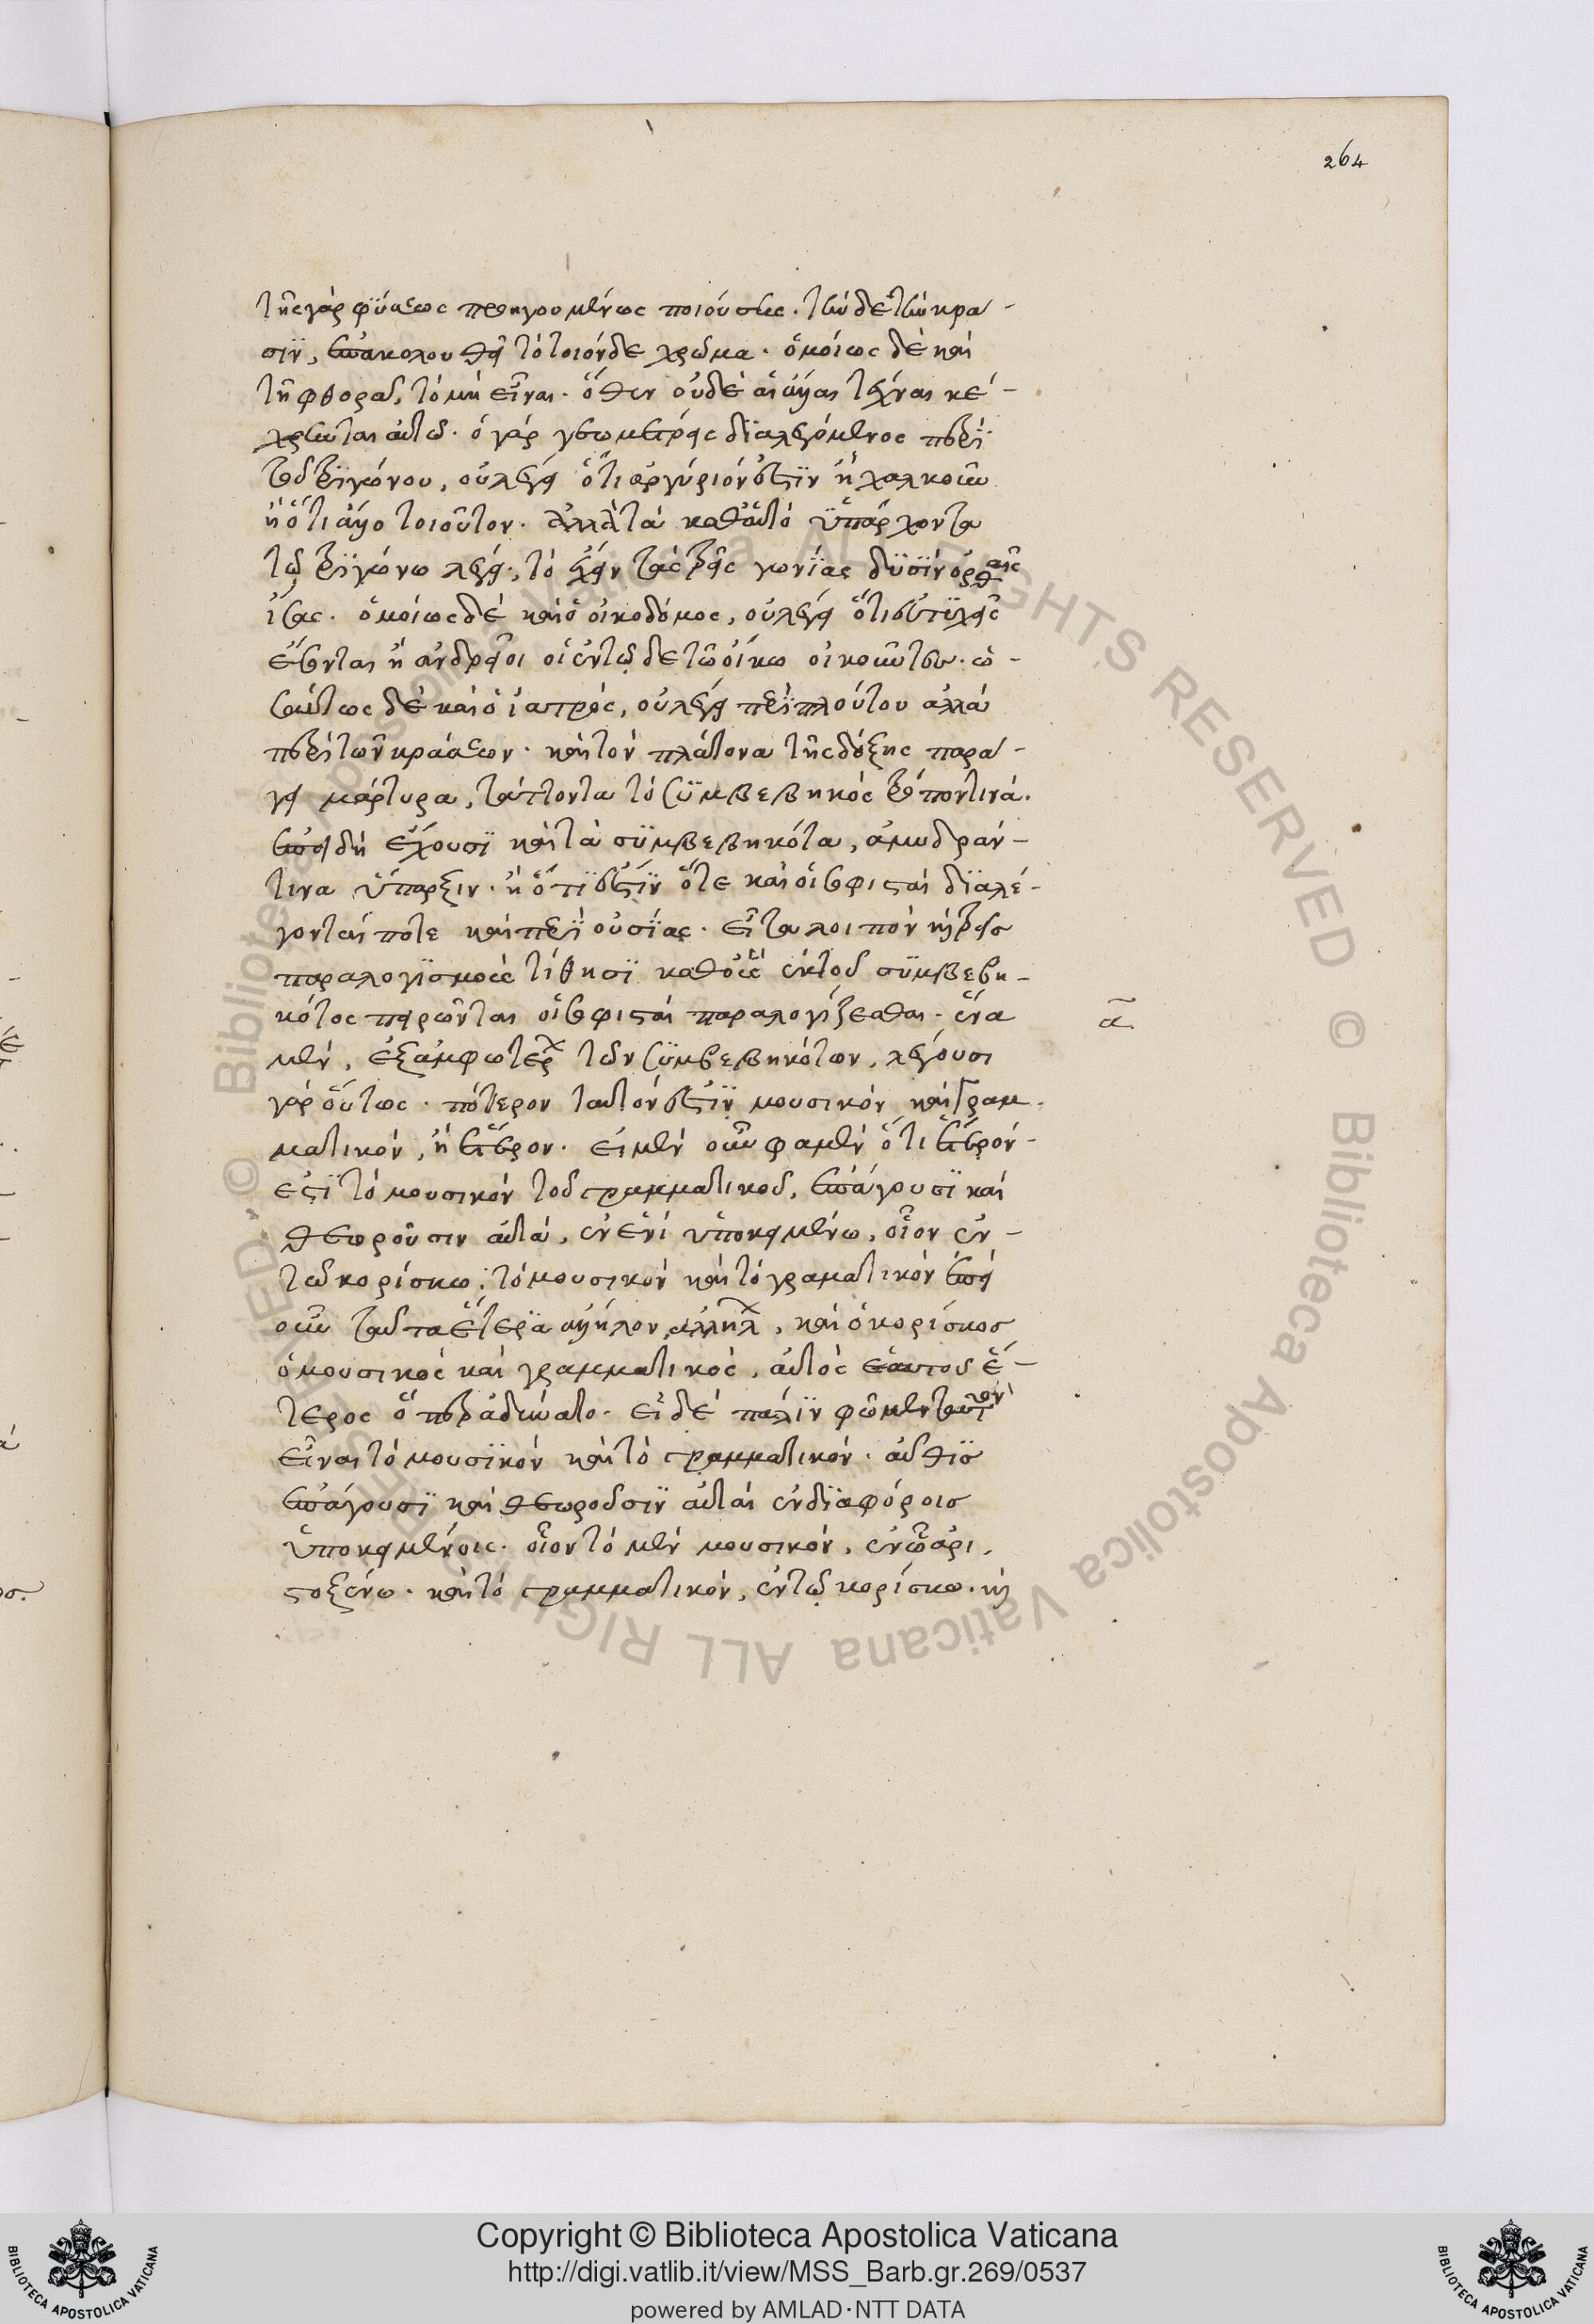 264
τῆς γὰρ φύσεως προηγουμένως ποιούσης τὴν δὲ τὴν κρα-
σιν, ἐπακολουθεῖ τὸ τοιόνδε χρῶμα. ὁμοίως δὲ καὶ
τῇ φθορᾷ, τὸ μὴ εἶναι. ὅθεν οὐδὲ αἱ ἄλλαι τέχναι κέ-
χρηνται αὐτῷ. ὁ γὰρ γεωμέτρης διαλεγόμενος περὶ
τοῦ τριγώνου, οὐ λέγει ὅτι ἀργύριόν ἐστιν ἢ χαλκοῦν
ἢ ὅτι ἄλλο τοιοῦτον. ἀλλὰ τὰ καθ' αὑτὸ ὑπάρχοντα
τῷ τριγώνω λέγει, τὸ ἔχειν τὰς τρεῖς γωνίας δυσὶν ὀρθαῖς
ἴσας. ὁμοίως δὲ καὶ ὁ οἰκοδόμος, οὐ λέγει ὅτι εὐτυχεῖς
ἔσονται ἢ ἀνδρεῖοι οἱ ἐν τῷδε τῷ οἴκω οἰκοῦντες. ὡ-
σαύτως δὲ καὶ ὁ ἰατρὸς, οὐ λέγει περὶ πλούτου ἀλλὰ
περὶ τῶν κράσεων. καὶ τὸν πλάτωνα τῆς δόξης παρά-
γει μάρτυρα, τάττοντα τὸ συμβεβηκὸς τρόπον τινά.
ἐπειδὴ ἔχουσι καὶ τὰ συμβεβηκότα, ἀμυδράν-
τινα ὕπαρξιν. ἢ ὅτι ἐστὶν ὅτε καὶ οἱ σοφισταὶ διαλέ-
γονταί ποτε καὶ περὶ οὐσίας. εἶτα λοιπὸν καὶ τρεῖς
παραλογισμοὺς τίθησι καθ' οὓς ἐκ τοῦ συμβεβη-
κότος πειρῶνται οἱ σοφισταὶ παραλογίζεσθαι. ἕνα
α
μὲν, ἐξ ἀμφωτέρ τῶν συμβεβηκότων, λέγουσι
γὰρ οὕτως. πότερον ταυτόν ἐστιν μουσικὸν καὶ γραμ-
ματικὸν, ἢ ἕτερον. εἰ μὲν οὖν φαμὲν ὅτι ἕτερόν-
ἐστὶ τὸ μουσικὸν τοῦ γραμματικοῦ, ἐπάγουσι καὶ
θεωροῦσιν αὐτὰ, ἐν ἑνὶ ὑποκειμένω, οἷον ἐν-
τῷ κορίσκω, τὸ μουσικὸν καὶ τὸ γραματικὸν ἐπεὶ
οὖν ταῦτα ἕτερα ἀλλήλον ἀλλήλ, καὶ ὁ κορίσκος
ὁ μουσικὸς καὶ γραμματικὸς, αὐτὸς ἑαυτοῦ ἕ-
τερος ὅπερ ἀδύνατο. εἰ δὲ πάλιν φῶμεν ταυτὸν
εἶναι τὸ μουσικὸν καὶ τὸ γραμματικὸν. αὖθις
ἐπάγουσι καὶ θεωροῦσιν αὐταὶ ἐν διαφόροις
ὑποκειμένοις. οἷον τὸ μὲν μουσικὸν, ἐν τῷ ἀρι-
στοξένω. καὶ τὸ γραμματικὸν, ἐν τῷ κορίσκω. καὶ
Copyright © Biblioteca Apostolica Vaticana
http://digi.vatlib.it/view/MSS_Barb.gr.269/0537
powered by AMLAD·NTT DATA